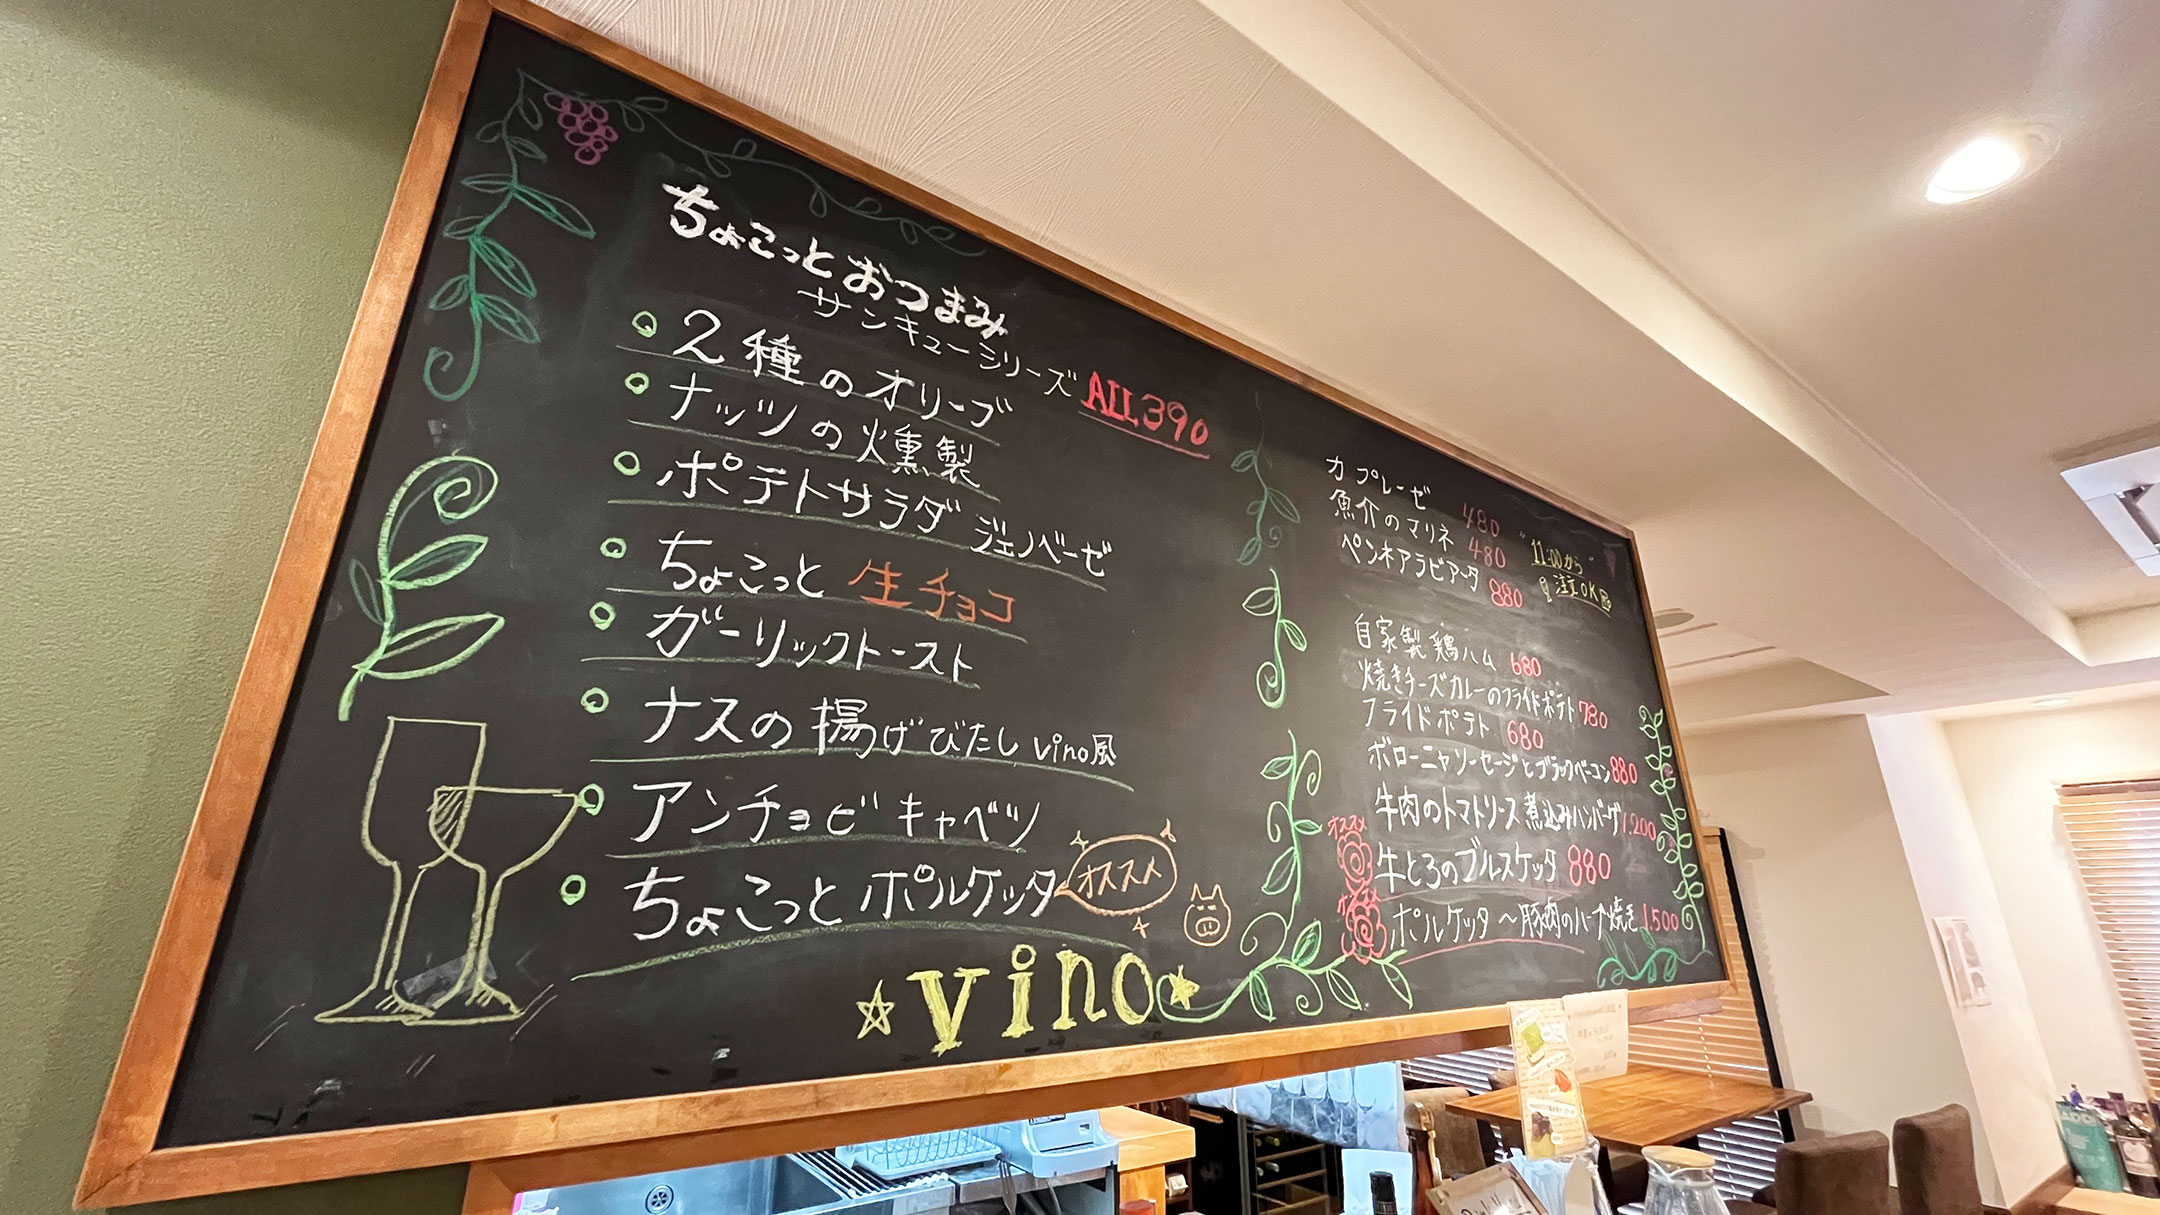 ちょこっとおつまみ
サンキューシリーズ ALL390
2種のオリーブ
ナッツの燻製
ポテトサラダ ジェノベーゼ
ちょこっと 生チョコ
ガーリックトースト
ナスの揚げびたし vino風
アンチョビキャベツ
ちょこっとポルケッタ オススメ
☆vino☆
カプレーゼ 480
魚介のマリネ 480
ペンネアラビアータ 880
"11:00から"
注文OK
自家製鶏ハム 680
焼きチーズカレーのフライドポテト 780
フライドポテト 680
ボローニャソーセージとブラックベーコン 880
牛肉のトマトソース煮込みハンバーグ 1.200
オススメ 牛とろのブルスケッタ 880
オススメ ポルケッタ 〜豚肉のハーブ焼き 1.500